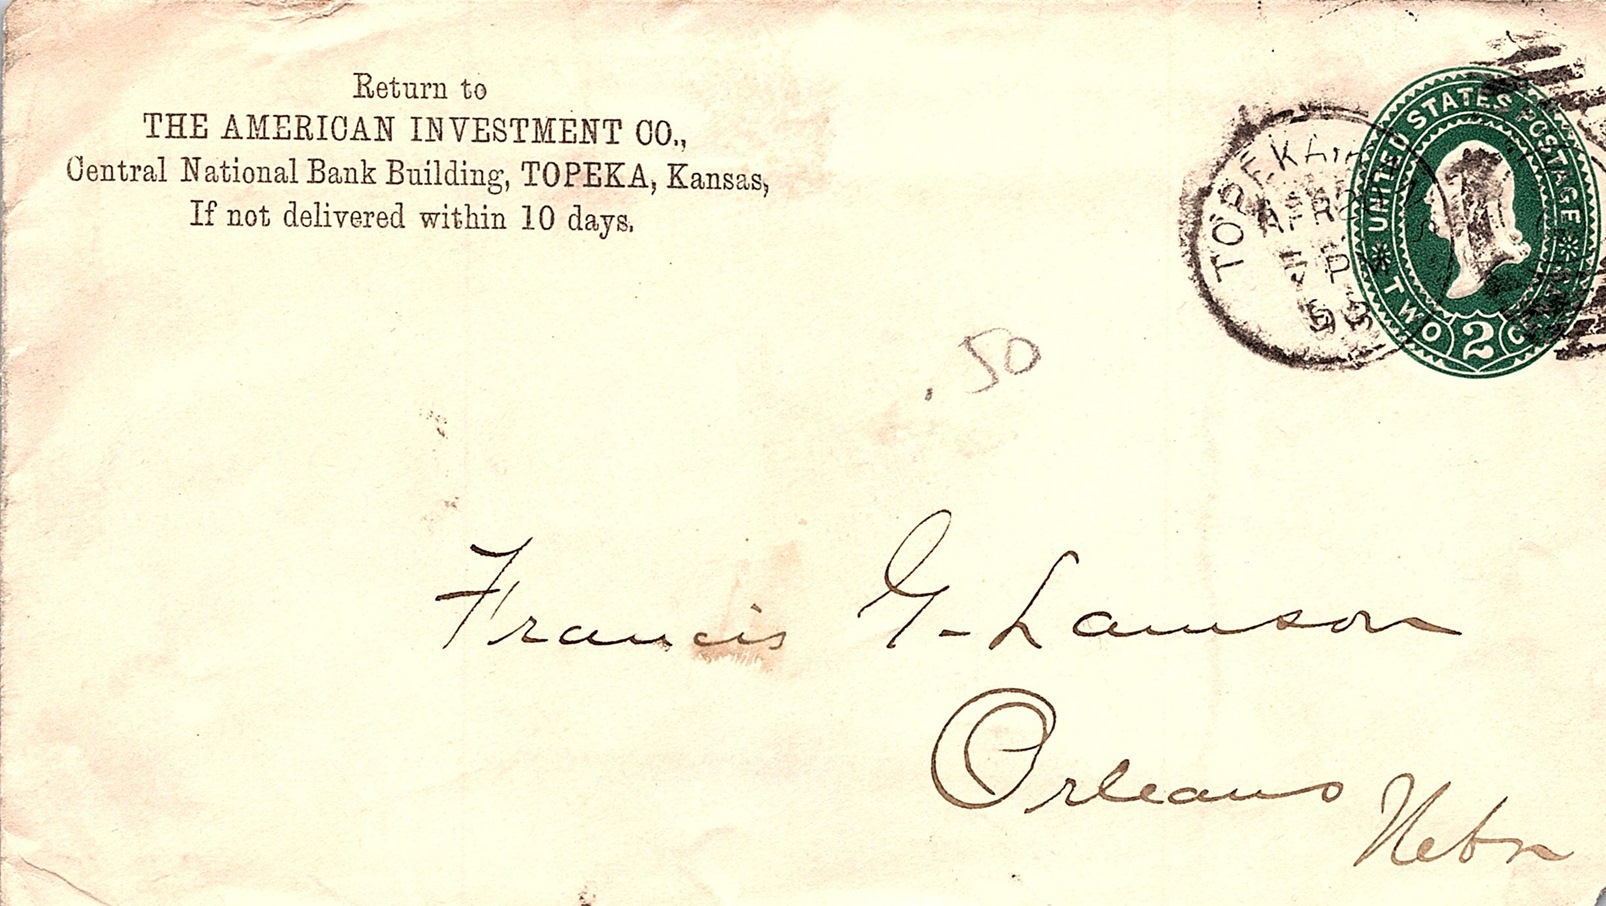 Return to
THE AMERICAN INVESTMENT CO.,
Central National Bank Building, TOPEKA, Kansas,
If not delivered within 10 days.
TOPEKA,
APR
UNITED STATES POSTAGE
TWO 2
.50
Francis G. Lamson
Orleans
Nebr